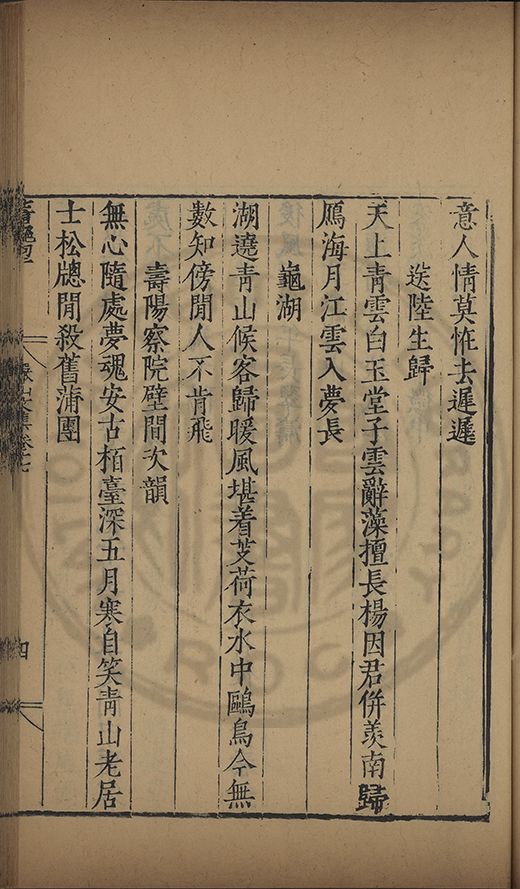 意人情莫怪去遲遲
送陸生歸
天上青雲白玉堂子雲辭藻擅長楊因君併羨南歸
鴈海月江雲入夢長
龜湖
湖遶青山候客歸暖風堪着芰荷衣水中鷗鳥今無
數知傍閒人不肯飛
壽陽察院壁間次韻
無心隨處夢魂安古栢臺深五月寒自笑青山老居
士松牕閒殺舊蒲團
四